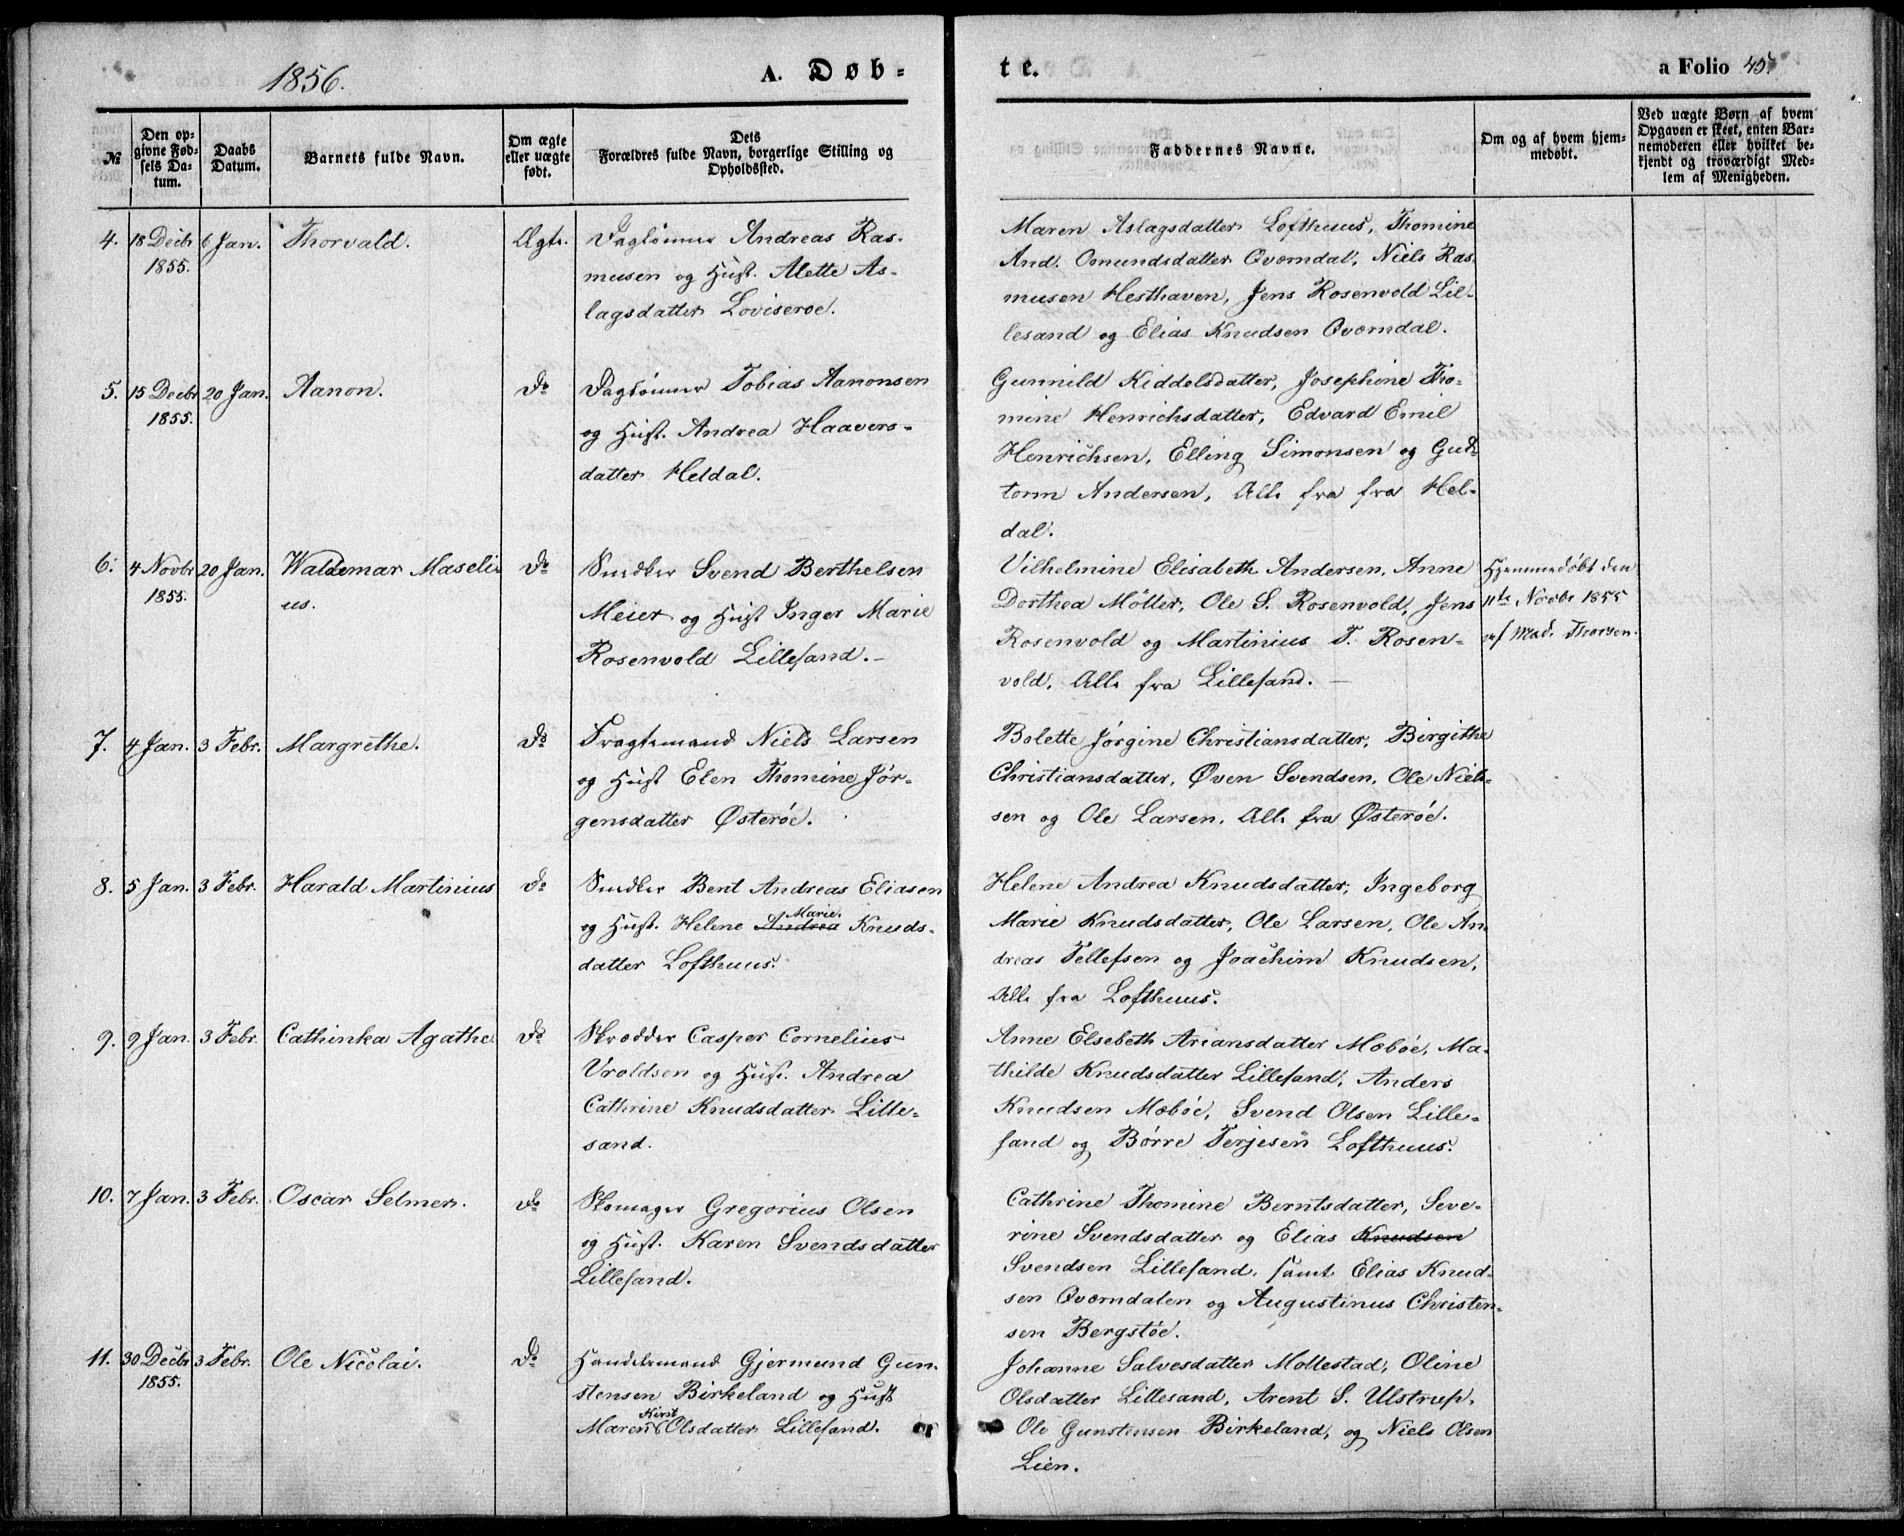 1856.
A. Døb-
te.
a Folio 45.
№
Den op-
givne Fød-
sels Da-
tum.
Daabs
Datum.
Barnets fulde Navn.
Om ægte
eller uægte
født.
Dets
Forældres fulde Navn, borgerlige Stilling og
Opholdssted.
Faddernes Navne.
Om og af hvem hjem-
medøbt.
Ved uægte Børn af hvem
Opgaven er skeet, enten Bar-
nemoderen eller hvilket be-
kjendt og troværdigt Med-
lem af Menigheden.
4. 18 Decbr 6 Jan. Thorvald. Ægte. Daglönner Andreas Ras-
1855.
musen og Hust. Alette As-
lagsdatter Loviseroe.
Maren Aslagsdatter Lofthuus, Thomine
And. Omundsdatter Qværndal, Niels Ras-
musen Hesthaven, Jens Rosenvold Lil-
lesand og Elias Knudsen Qværndal.
5. 15 Decbr 20 Jan. Aanon. Do Daglönner Tobias Aanonsen
1855.
og Hust. Andrea Haavers-
datter Heldal.
Gunnild Kiddelsdatter, Josephine Tho-
mine Henrichsdatter, Edvard Emil
Henrichsen, Elling Simonsen og Gut-
torm Andersen, Alle fra fra Hel-
dal.
6. 4 Novbr 20 Jan. Waldemar Maseli- Do Snedker Svend Berthelsen
1855. us.
Meier og Hust Inger Marie
Rosenvold Lillesand.-
Vilhelmine Elisabeth Andersen, Anne
Dorthea Möller, Ole S. Rosenvold, Jens
Rosenvold og Martinius T. Rosen-
vold, Alle fra Lillesand. —
Hjemmedöbt den
11te Novbr 1855
af Mad. Thorsen.
7. 4 Jan. 3 Febr. Margrethe. Do Fragtemand Niels Larsen
og Hust Elen Thomine Jör-
gensdatter Østeröe.
Bolette Jörgine Christiansdatter, Birgithe
Christiansdatter, Øven Svendsen, Ole Niel-
sen og Ole Larsen, Alle fra Østeröe.
8. 5 Jan. 3 Febr. Harald Martinius Do Snedker Bent Andreas Eliasen
Marie.
og Hust. Helene Andrea Knuds-
datter Lofthuus.
Helene Andrea Knudsdatter, Ingeborg
Marie Knudsdatter, Ole Larsen, Ole An-
dreas Tellefsen og Joachim Knudsen,
Alle fra Lofthuus.
9. 9 Jan. 3 Febr. Cathinka Agathe Do Skrædder Casper Cornelius
Vroldsen og Hust. Andrea
Cathrine Knudsdatter Lille-
sand.
Anne Elsebeth Ariansdatter Mæbøe, Ma-
thilde Knudsdatter Lillesand, Anders
Knudsen Mæbøe, Svend Olsen Lille-
sand og Børre Terjesen Lofthuus.
10. 7 Jan. 3 Febr. Oscar Selmer. Do Skomager Gregorius Olsen
og Hust. Karen Svendsdatter
Lillesand.
Cathrine Thomine Berntsdatter, Seve-
rine Svendsdatter og Elias Knudsen
Svendsen Lillesand, samt Elias Knud-
sen Qværndalen og Augustinus Christen-
sen Bergstöe.
11. 30 Decbr 3 Febr. Ole Nicolai. Do Handelsmand Gjermund Gun-
1855.
stensen Birkeland og Hust
Kirst
Maren Olsdatter Lillesand.
Johanne Salvesdatter Mollestad, Oline
Olsdatter Lillesand, Arent S. Ulstrup,
Ole Gunstensen Birkeland, og Niels Olsen
Lien.